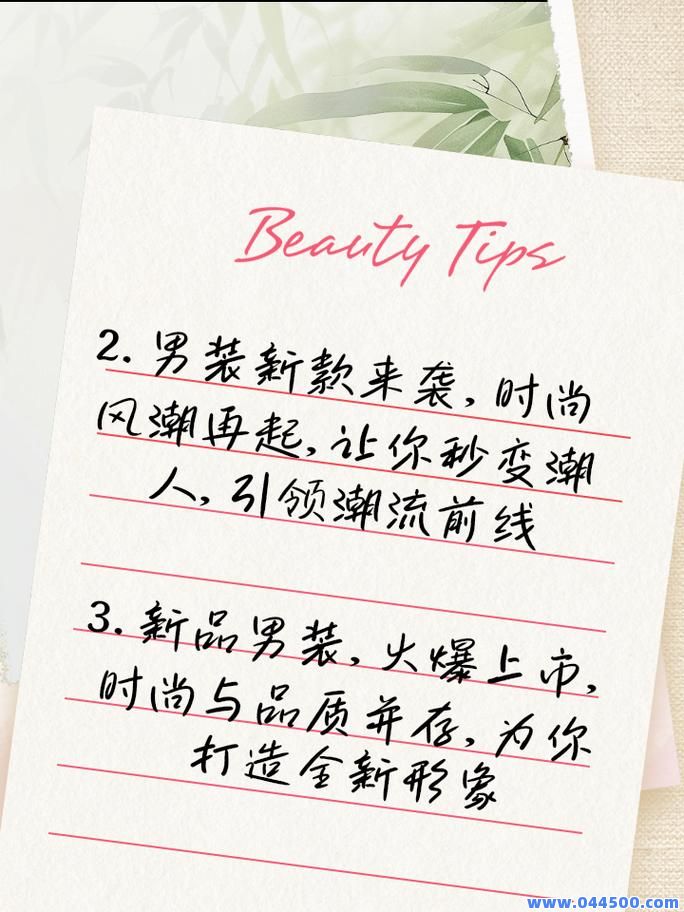 Beauty Tips
2. 男装新款来袭，时尚
风潮再起，让你秒变潮
人，引领潮流前线
3. 新品男装，火爆上市，
时尚与品质并存，为你
打造全新形象
www.044500.com